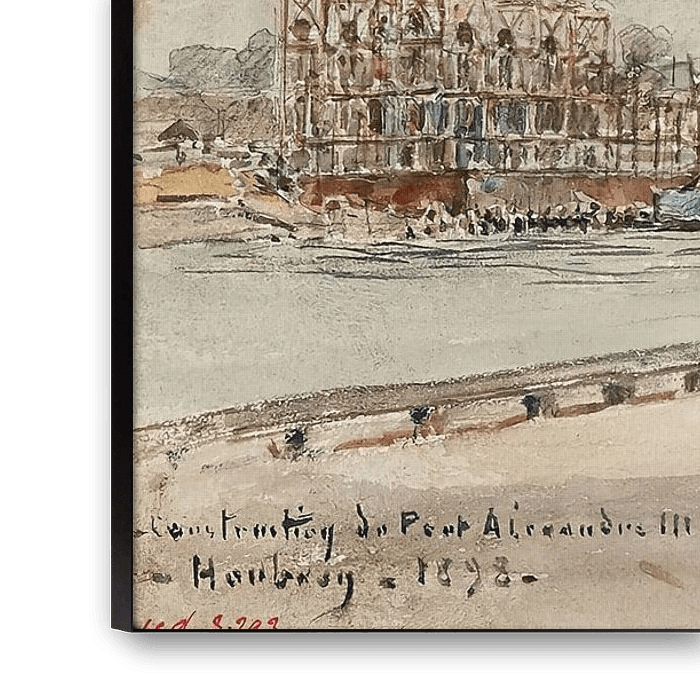 Construction du Pont Alexandre III
- Houbron - 1898 -